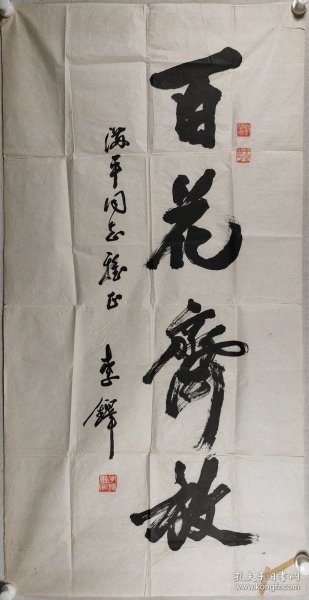 百花齊放
海平同志雅正
李鐸
孔夫子旧书网
www.kongfz.com